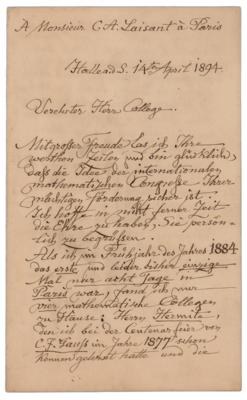 A Monsieur C.A. Laisant à Paris
Halle a d S. 14ten April 1894
Verehrter Herr College.
Mit grosser Freude las ich Ihre
werthen Zeilen und bin glücklich,
daß die Idee der internationalen
mathematischen Congresse Ihrer
mächtigen Förderung sicher ist.
Ich hoffe in nicht ferner Zeit
die Ehre zu haben, Sie persön-
lich zu begrüßen.
Als ich im Frühjahr des Jahres 1884
das erste und leider bisher einzige
Mal nur acht Tage in
Paris war, fand ich nur
vier mathematische Collegen
zu Hause: Herrn Hermite,
den ich bei der Centenarfeier von
C.F. Gauss im Jahre 1877 schon
kennen gelernt hatte und die